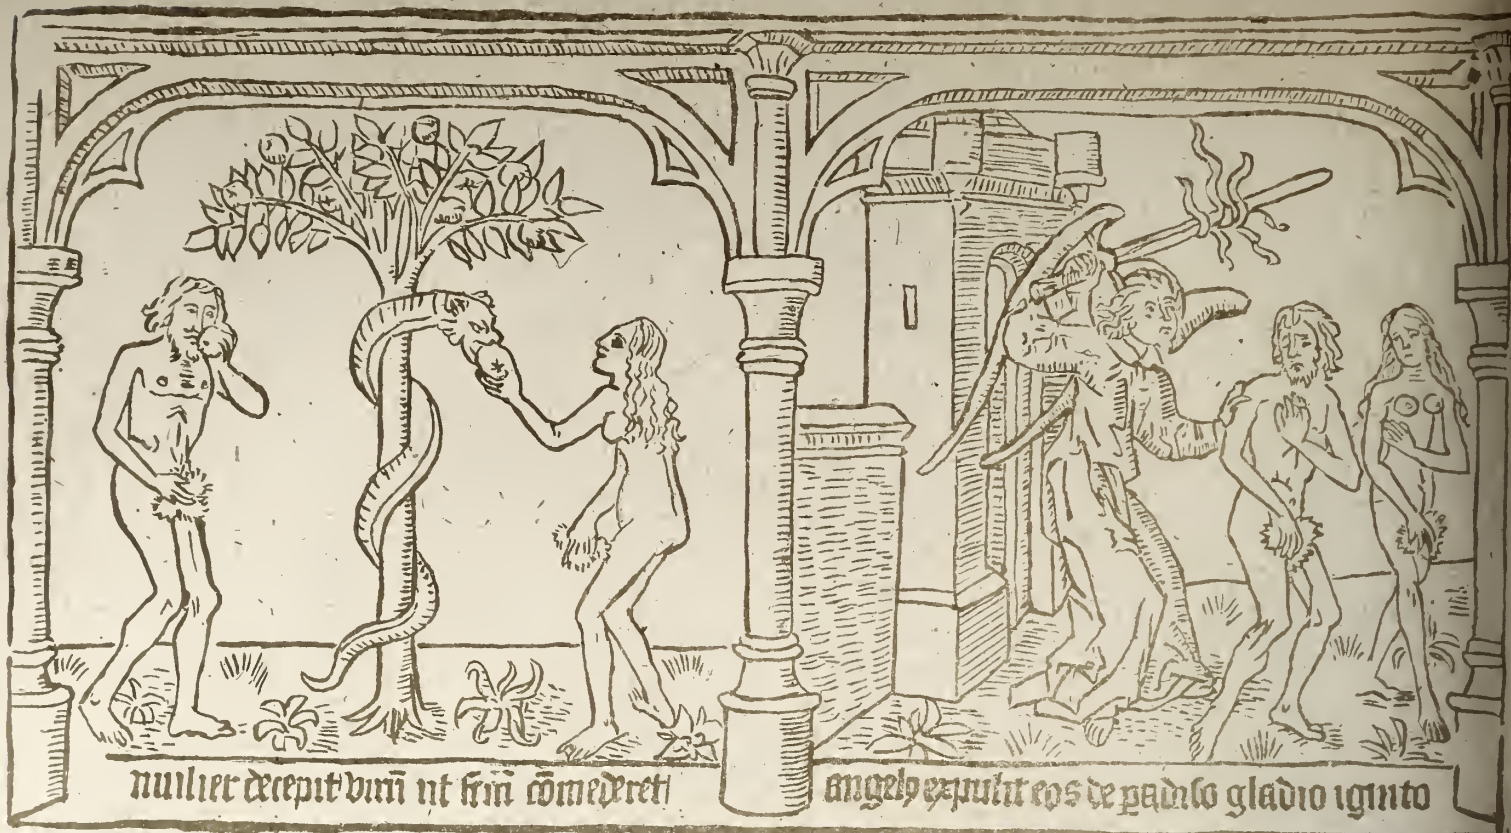 mulier decepit virū ut secū cōmederet
angelꝰ expulit eos de ꝑadiso gladio ignito